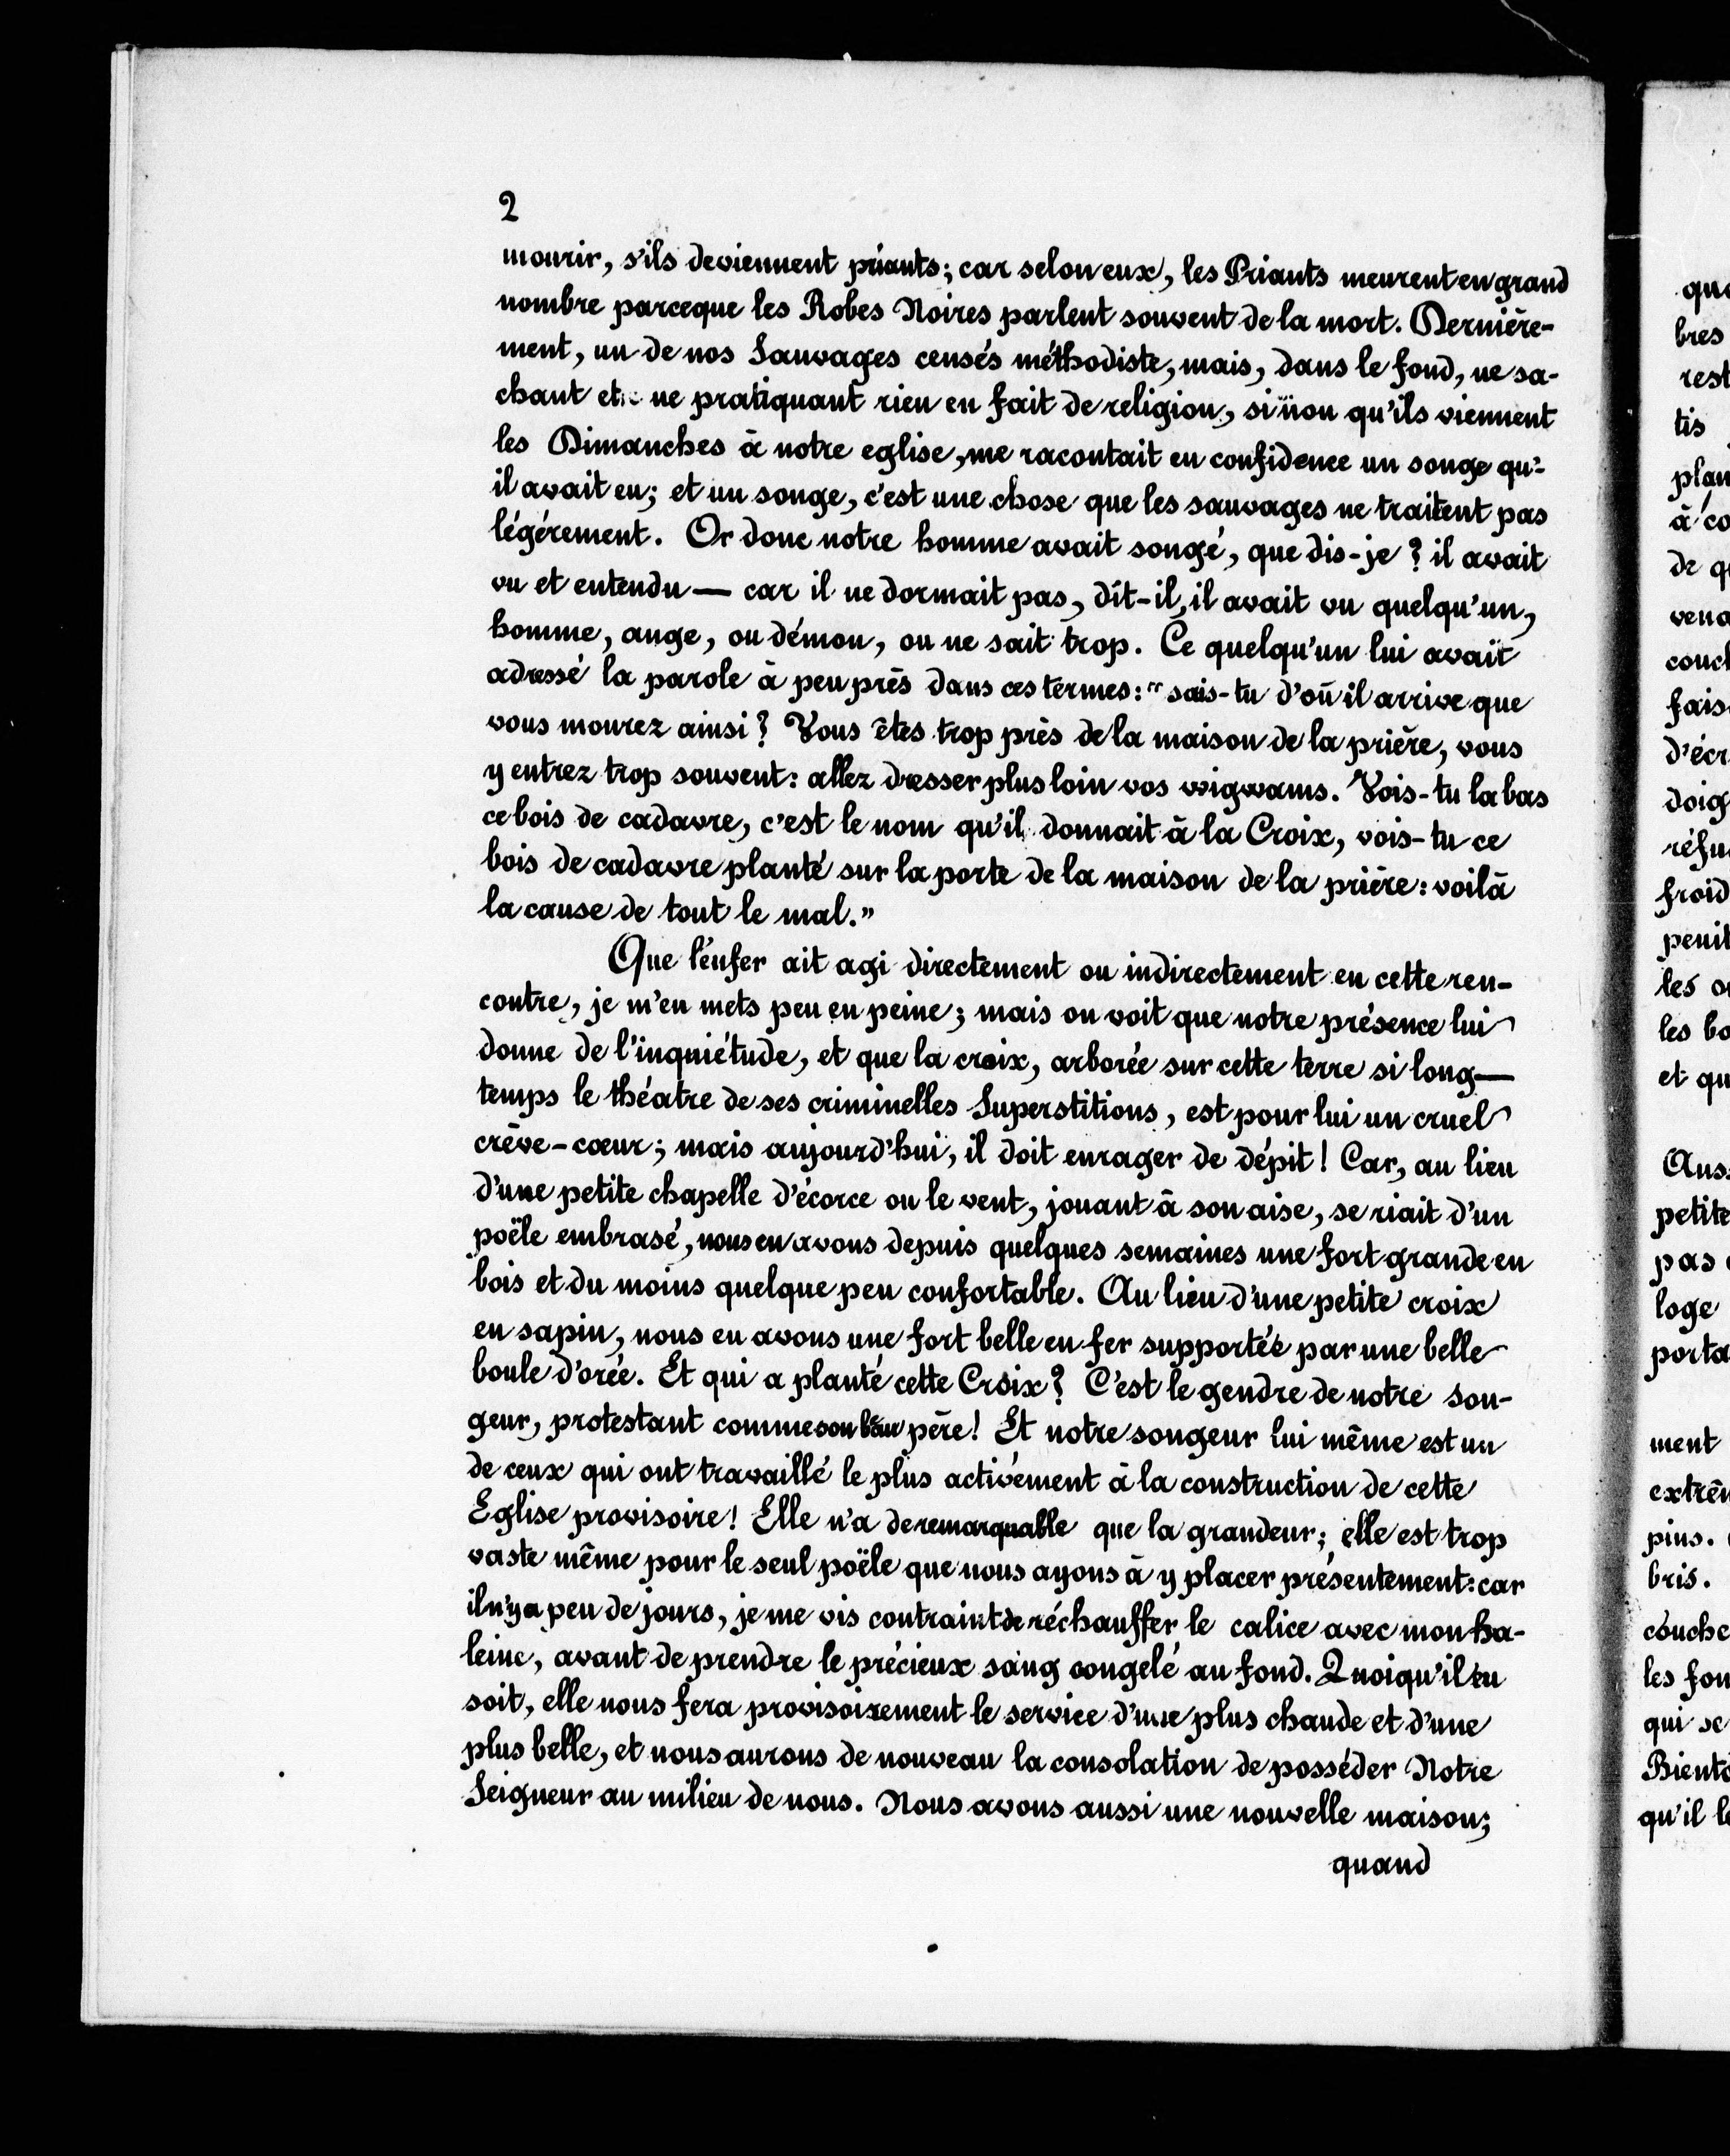 2
mourir, s'ils deviennent priants; car selon eux, les Priants meurent en grand
nombre parceque les Robes Noires parlent souvent de la mort. Dernière-
ment, un de nos Sauvages censés méthodiste, mais, dans le fond, ne sa-
chant et ne pratiquant rien en fait de religion, sinon qu'ils viennent
les Dimanches à notre eglise, me racontait en confidence un songe qu'-
il avait eu; et un songe, c'est une chose que les sauvages ne traitent pas
légérement. Or donc notre homme avait songé, que dis-je? il avait
vu et entendu — car il ne dormait pas, dit-il, il avait vu quelqu'un,
homme, ange, ou démon, on ne sait trop. Ce quelqu'un lui avait
adressé la parole à peu près dans ces termes: "sais-tu d'où il arrive que
vous mourez ainsi? Vous êtes trop près de la maison de la prière, vous
y entrez trop souvent: allez dresser plus loin vos wigwams. Vois-tu la bas
ce bois de cadavre, c'est le nom qu'il donnait à la Croix, vois-tu ce
bois de cadavre planté sur la porte de la maison de la prière: voilà
la cause de tout le mal."
Que l'enfer ait agi directement ou indirectement en cette ren-
contre, je m'en mets peu en peine; mais on voit que notre présence lui
donne de l'inquiétude, et que la croix, arborée sur cette terre si long—
temps le théatre de ses criminelles Superstitions, est pour lui un cruel
crève-cœur; mais aujourd'hui, il doit enrager de dépit! Car, au lieu
d'une petite chapelle d'écorce ou le vent, jouant à son aise, se riait d'un
poële embrasé, nous en avons depuis quelques semaines une fort grande en
bois et du moins quelque peu confortable. Au lieu d'une petite croix
en sapin, nous en avons une fort belle en fer supportée par une belle
boule d'orée. Et qui a planté cette Croix? C'est le gendre de notre son-
geur, protestant comme son beau père! Et notre songeur lui même est un
de ceux qui ont travaillé le plus activement à la construction de cette
Eglise provisoire! Elle n'a de remarquable que la grandeur; elle est trop
vaste même pour le seul poële que nous ayons à y placer présentement: car
il n'y a peu de jours, je me vis contraint de réchauffer le calice avec mon ha-
leine, avant de prendre le précieux sang congelé au fond. Quoiqu'il en
soit, elle nous fera provisoirement le service d'une plus chaude et d'une
plus belle, et nous aurons de nouveau la consolation de posséder Notre
Seigneur au milieu de nous. Nous avons aussi une nouvelle maison;
quand
bres
rest
tis
plan
à co
de q
vena
couch
fais
d'écr
doig
réfu
froid
penit
les o
les bo
et qu
Auss
petite
pas
loge
porta
ment
extrêm
pins.
bris.
couche
les fon
qui se
Biento
qu'il l